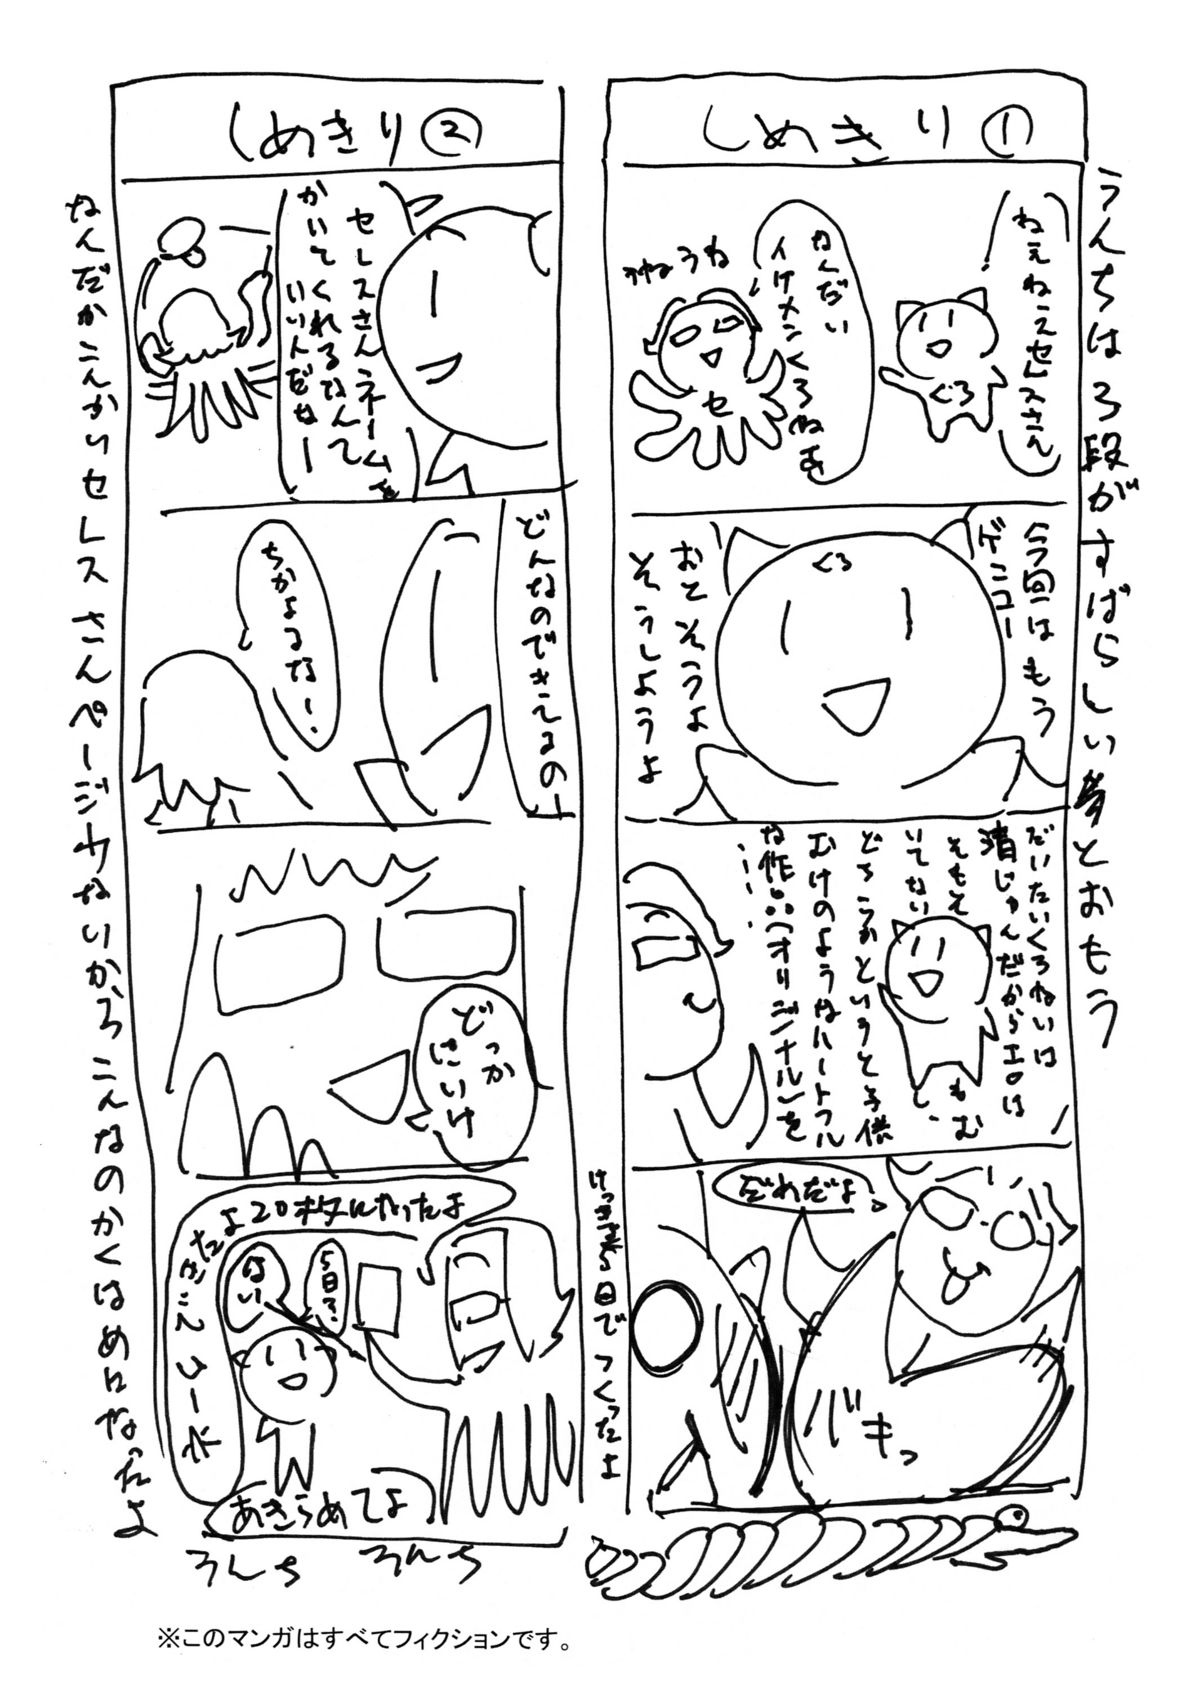 うんちはろ段がすばらしい事とおもう
しめきり①
ねえねえセレスさん
なんだい
イケメンくろねゐ
うねうね
くろ
セ
今回はもう
ゲンコー
おとそうよ
そうしようよ
くろ
だいたいくろねゐは
清じゅんだからエロは
そもそも
いてない
どちらかというと子供
むけのようなハートフル
な作品(オリジナル)を
……
だれだよ!
バキっ
けっきょく5日でつくったよ
しめきり②
セレスさんネームを
かいてくれるなんて
いいんだねー
どんなのできてるのー
ちかよるなー!
どっか
にいけ
20枚になったよ
5日で?
はい
あきらめてよ
うんち うんち
なんだかこんかいセレスさんページすくないからこんなのかくはめになったよ
※このマンガはすべてフィクションです。